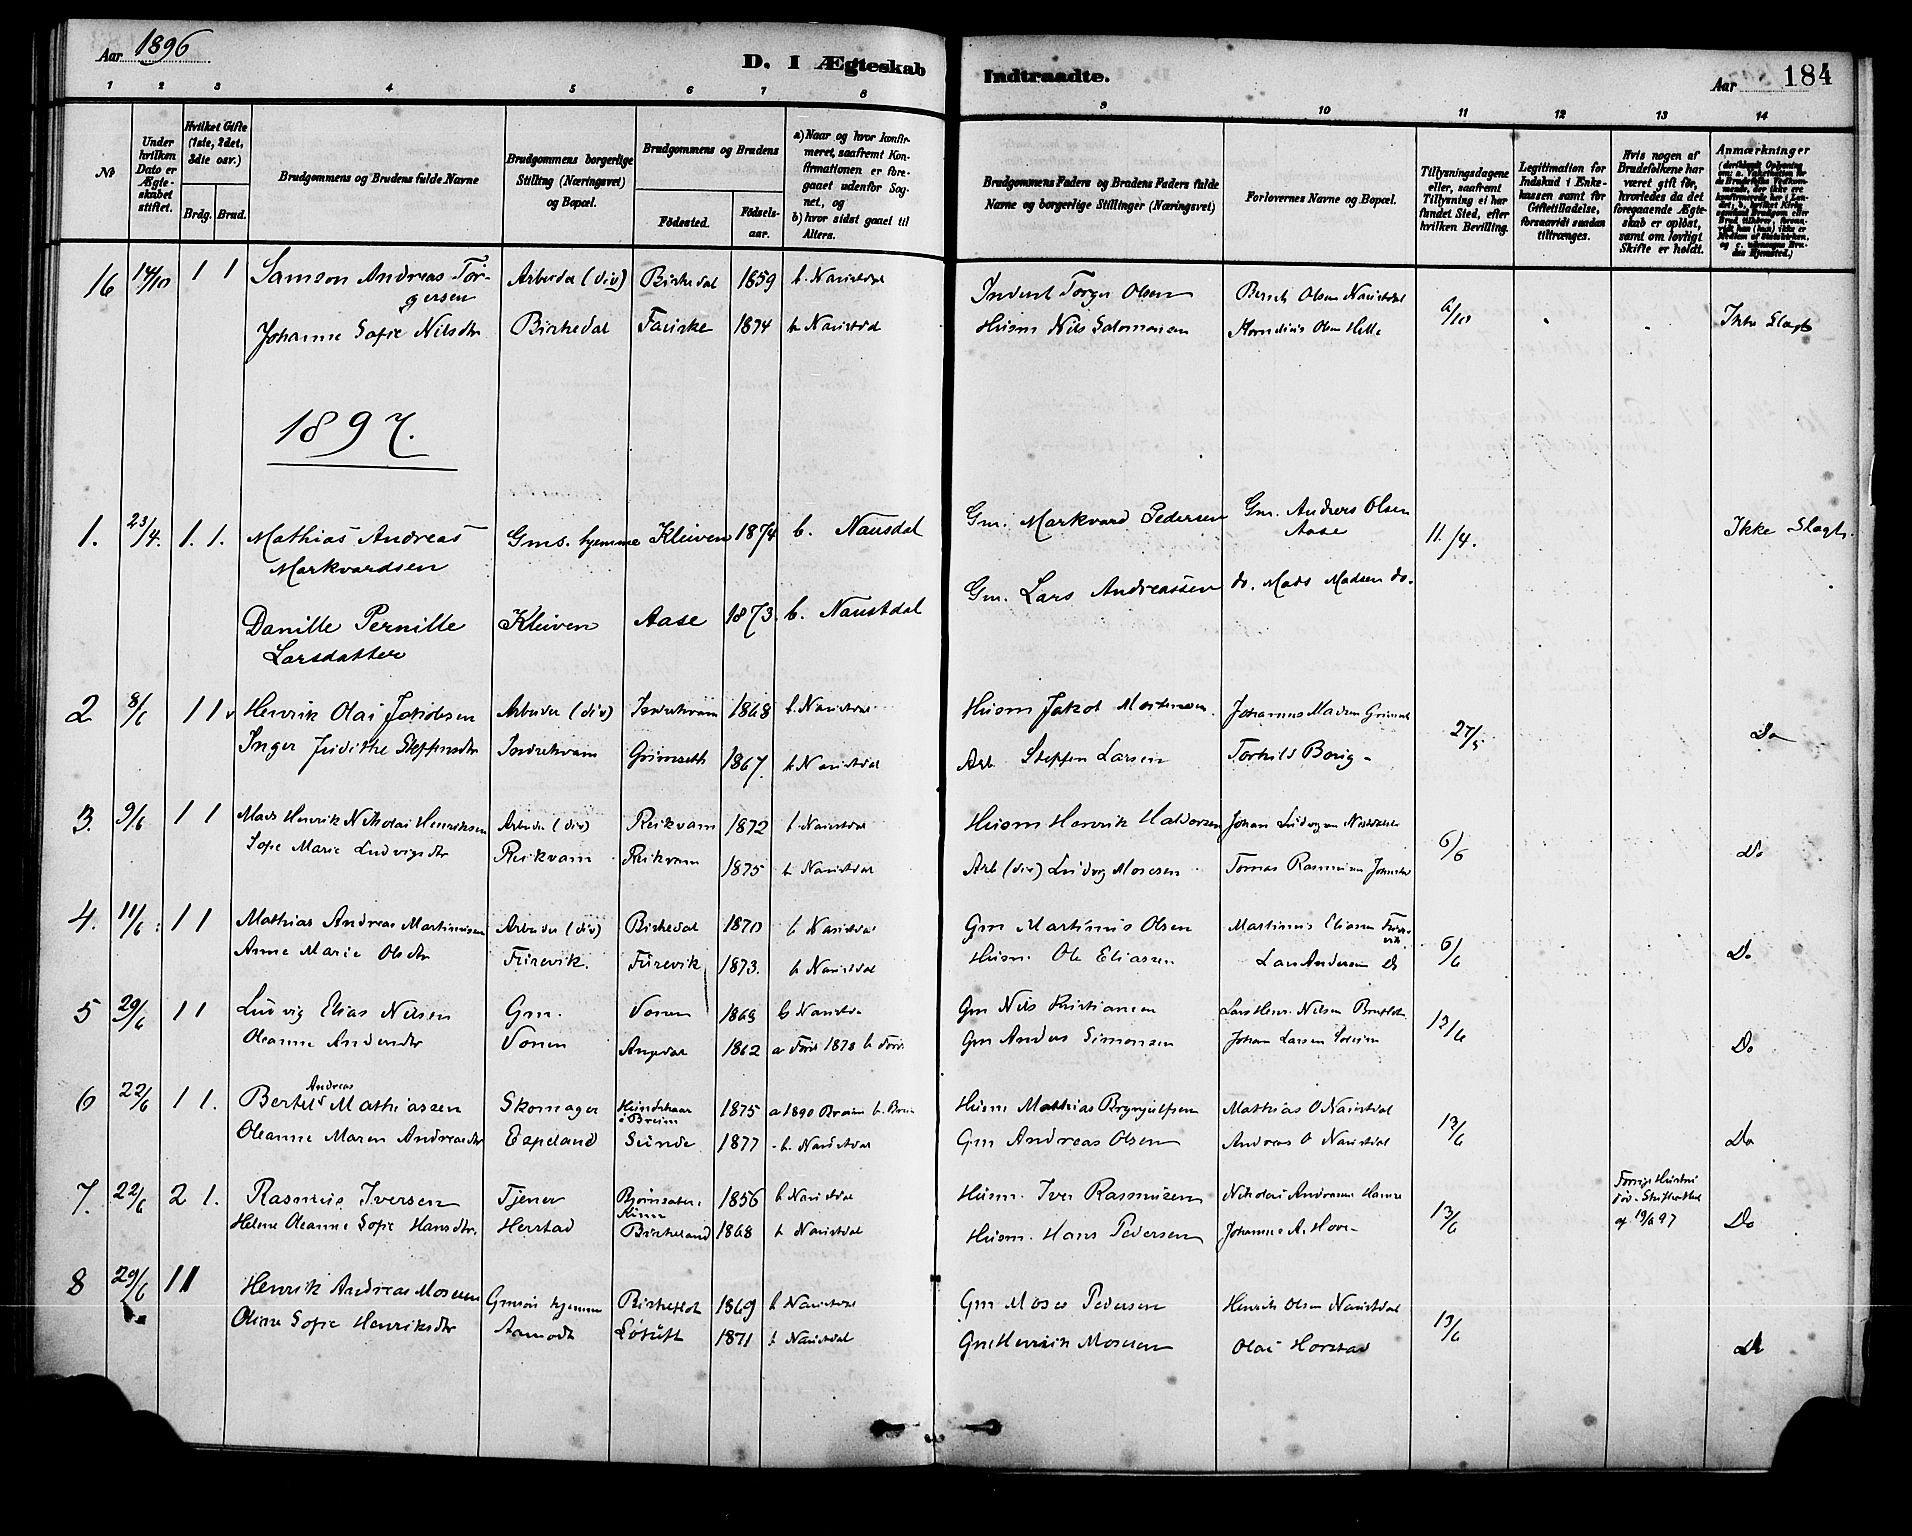 Aar 1896
D. I Ægteskab Indtraadte.
Aar 184
1 2 3 4 5 6 7 8 9 10 11 12 13 14
No
Under hvilken Dato er Ægteskabet stiftet.
Hvilket Gifte (1ste, 2det, 3die osv.)
Brdg. Brud.
Brudgommens og Brudens fulde Navne
Brudgommens borgerlige Stilling (Næringsvei) og Bopæl.
Brudgommens og Brudens
Fødested. Fødselsaar.
a) Naar og hvor konfirmeret, saafremt Konfirmationen er foregaaet udenfor Sognet, og
b) hvor sidst gaaet til Alters.
Brudgommens Faders og Brudens Faders fulde Navne og borgerlige Stillinger (Næringsvei)
Forlovernes Navne og Bopæl.
Tillysningsdagene eller, saafremt Tillysning ei har fundet Sted, efter hvilken Bevilling.
Legitimation for Indskud i Enkekassen samt for Giftetilladelse, forsaavidt saadan tiltrænges.
Hvis nogen af Brudefolkene har været gift før, hvorledes da det foregaaende Ægteskab er opløst, samt om lovligt Skifte er holdt.
Anmærkninger
16 14/10 1 1 Samson Andreas Torgersen Arbeider (div) Birkedal 1859 b. Naustdal Inderst Torger Olsen Bernt Olsen Naustdal 6/10 Ikke Slagt
Johanne Sofie Nilsdtr Birkedal Fauske 1874 b Naustdal Husm Nils Salomonsen Kornelius Olsen Helle
1897.
1. 23/4. 1. 1. Mathias Andreas Markvardsen Gms. hjemme Kleiven 1874 b. Nausdal Gm. Markvard Pedersen Gm. Anders Olsen Aase 11./4. Ikke Slagt.
Danille Pernille Larsdatter Kleiven Aase 1873. b. Naustdal Gm. Lars Andreassen do. Mads Madsen do.
2 8/6 1 1 Henrik Olai Jakobsen Arbeider (div) Indrekvam 1868 b. Naustdal Husm Jakob Mortensen Johannes Madsen 27/5 Do
Inger Judithe Steffensdtr Indrekvam Grimseth 1867. b Naustdal Arb Steffen Larsen
3. 9/6 1 1 Mads Henrik Nikolai Henriksen Arbeider (div) Reikvam 1872 b Naustdal Husm Henrik Haldorsen Johan Ludvigsen 6/6 Do
Sofie Marie Ludvigsdtr Reikvam Reikvam 1875 b Naustdal Arb (div) Ludvig Mosesen Tomas Rasmussen
4. 11/6 1 1 Mathias Andreas Martinusen Arbeider (div) Birkedal 1870 b Naustdal Gm Martinus Olsen Martinus Eliassen Furevik 6/6 Do
Anne Marie Olsdtr Furevik. Furevik 1873. b Naustdal Husm. Ole Eliassen Lars Andersen Do
5 29/6 1 1 Ludvig Elias Nilsen Gm. Vonen 1863 b Naustda Gm Nils Kristiansen Lars Henr. Nilsen 13/6
Oleanne Andersdtr Vonen Angedal 1862 a Førde 1878 b Førde Gm Anders Simonsen Johan Larsen Do
6 22/6 1 1. Bertel Andreas Mathiassen Skomager i Breim 1875 a 1890 Breim b. Breim Husm Mathias Brynjulfsen Mathias O Naustdal 13/6
Oleanne Maren Andreasdtr Espeland Sunde 1877 b. Naustdal Gm Andreas Olsen Andreas O Naustdal Do
7. 22/6 2 1. Rasmus Iversen Tjener Kinn 1856 b Naustdal Husm. Iver Rasmusen Nikolai Andersen 13/6 af 19/6 97 Do
Helene Oleanne Sofie Hansdtr. Herstad Birkeland 1868 b Naustdal Husm. Hans Pedersen Johannes A. Hove
8 29/6 1 1 Henrik Andreas Mosesen Gmsøn hjemme 1869 b Naustdal Gm Moses Pedersen Henrik Olsen Naustdal 13/6
Oline Sofie Henriksdtr Aamodt 1871 b Naustdal Gm Henrik Mosesen Olai Horstad Do